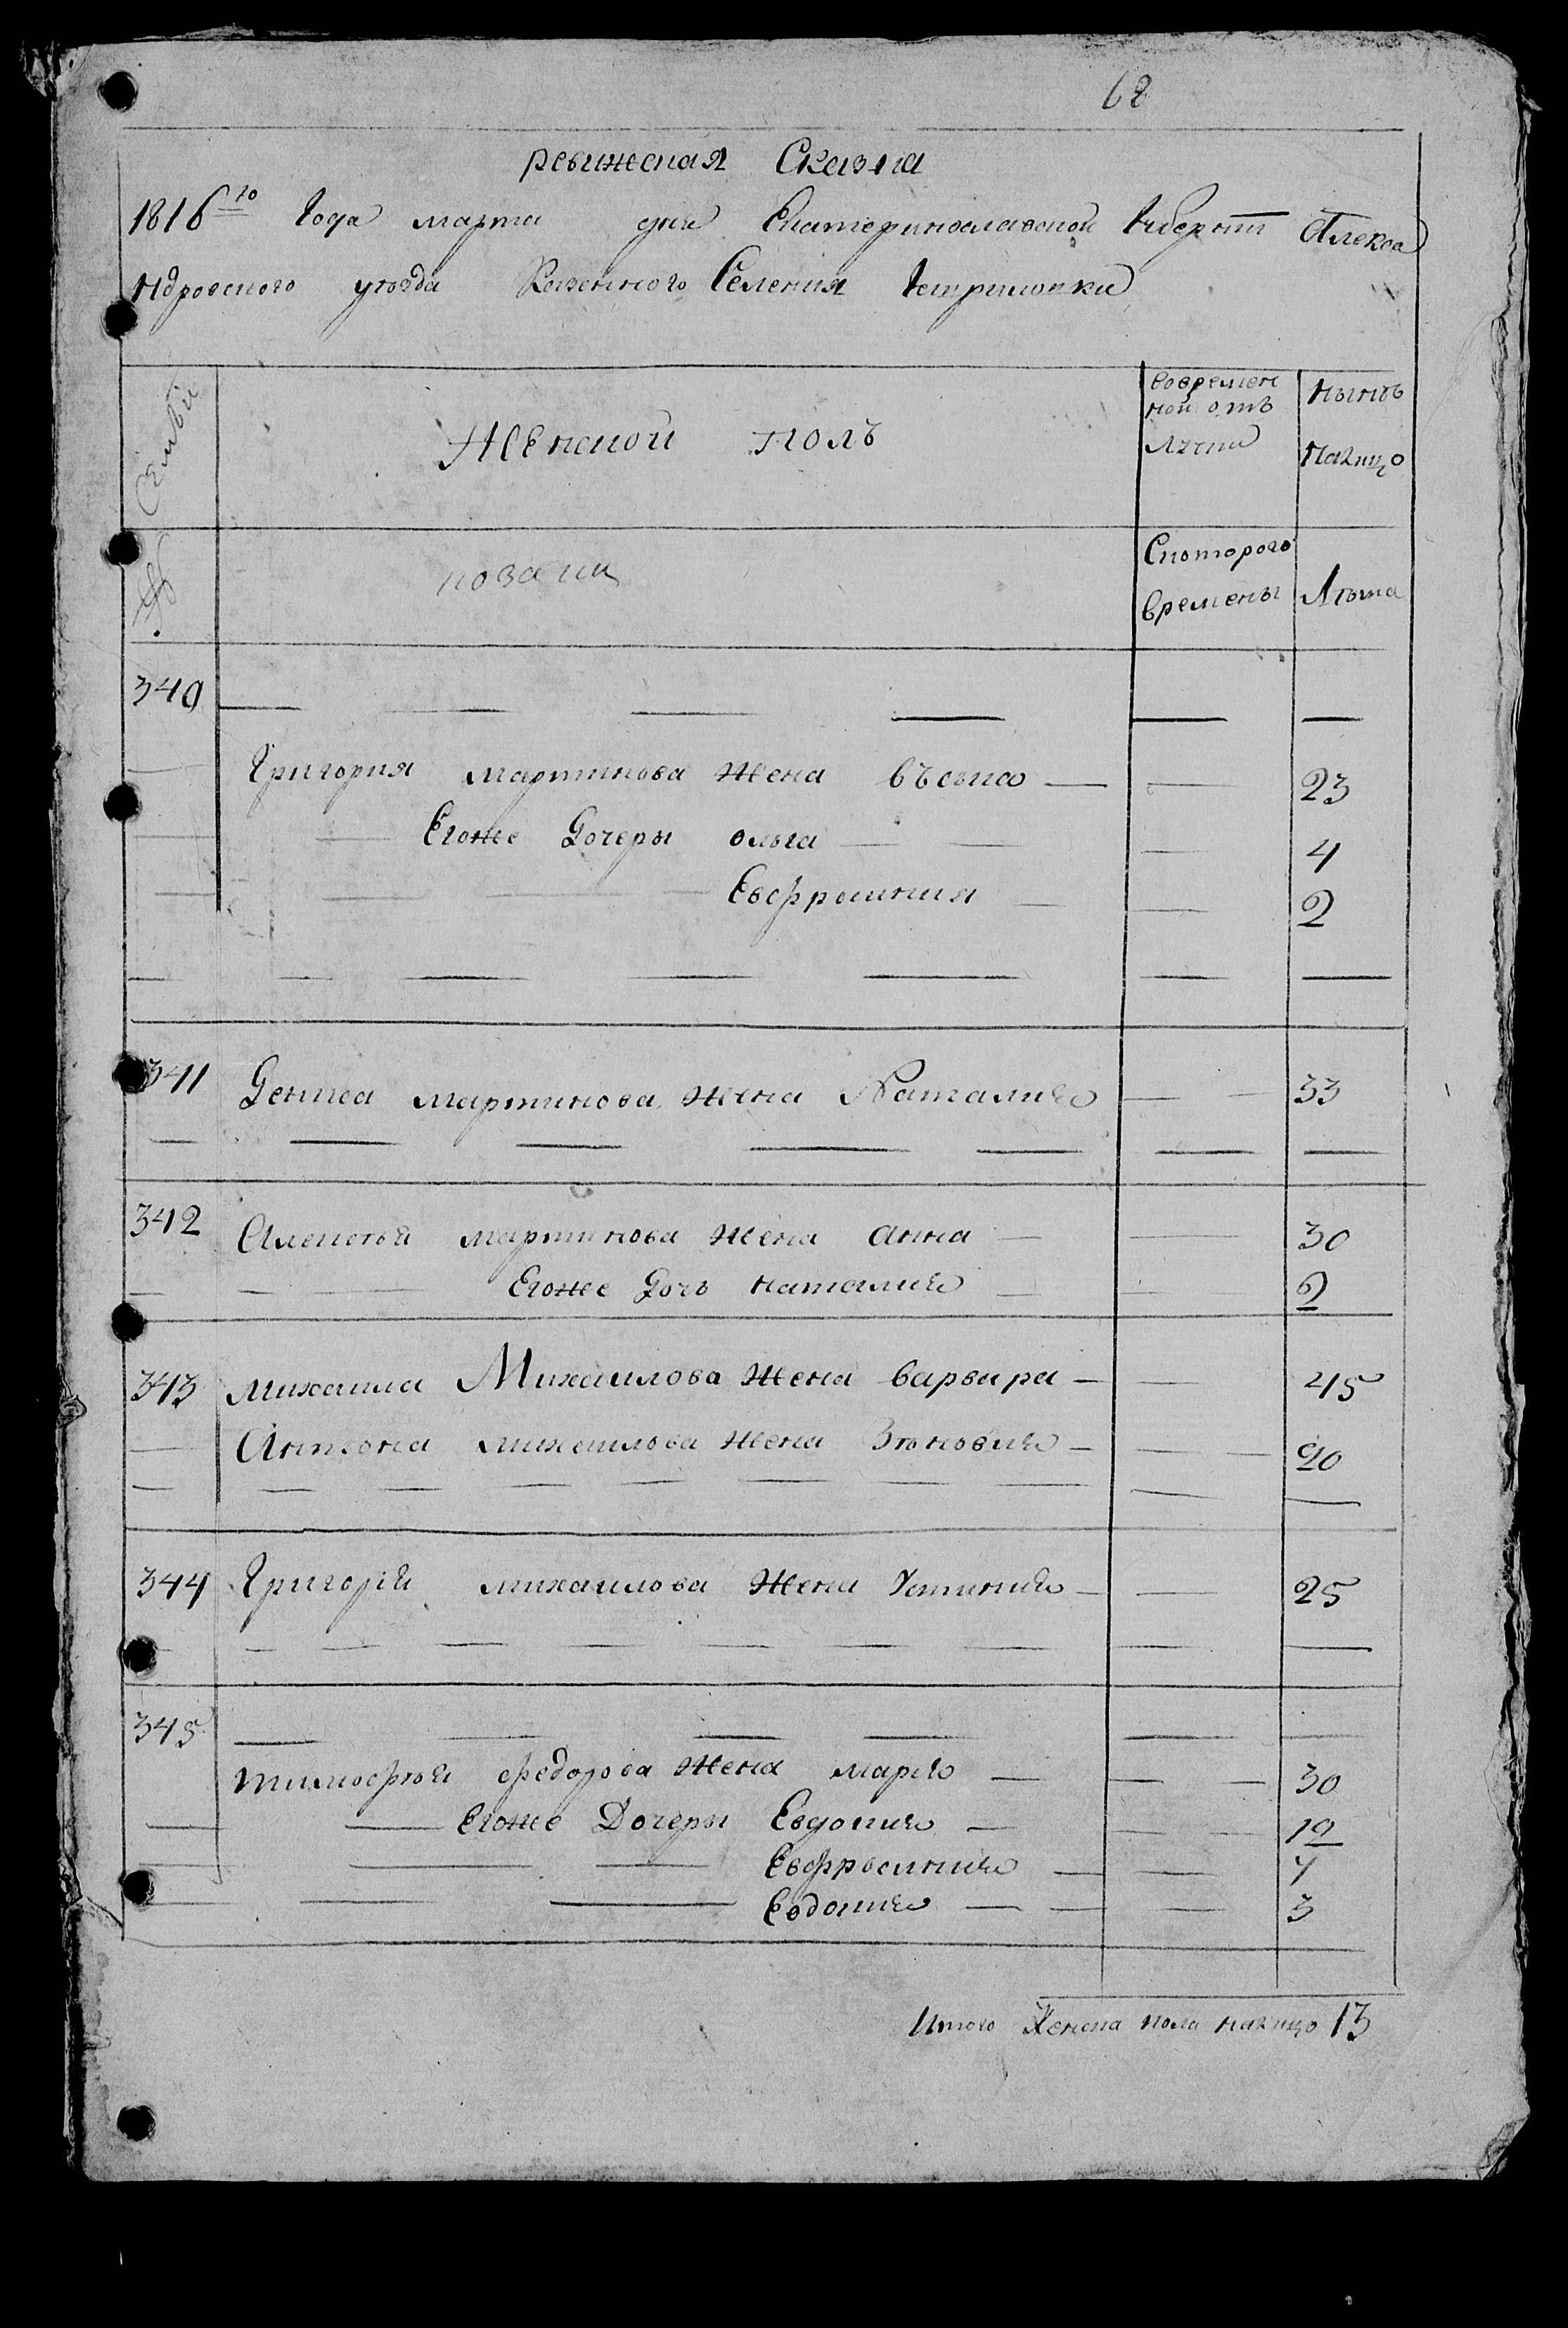 68
ревижская Сказка
1816го Года марта дня Екатеринославской Губернии Алекса
ндровского уезда Казенного Селения
Семьи Женской полъ вовремен ной отъ лучки нынъ налицо
№ Скоторого времены Лъта
340
Григория мартинова жена 23
Егоже Дочеры олга 4
Евфросиния 2
341 Дениса мартинова жена Наталия 33
342 Алексъя мартинова жена анна 30
Егоже Дочъ наталия 2
343 михаила Михаилова жена варвара 45
Антона михаилова жена Зъновия 20
344 Григория михаилова жена Устиния 25
345
тимофъя федорова жена мария 30
Егоже Дочеры Евдокия 10
Евфросиния 7
Евдокия 3
Итого Женска пола налицо 13